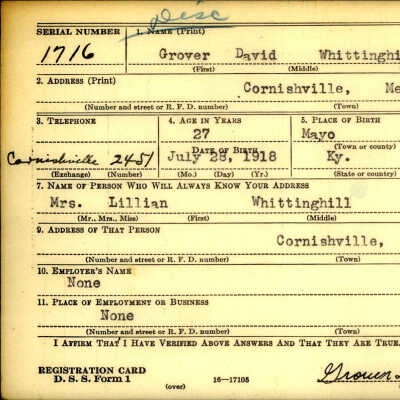 Disc
SERIAL NUMBER 1. NAME (Print)
1716 Grover David Whittinghi
(First) (Middle)
2. ADDRESS (Print)
Cornishville, Me
(Number and street or R. F. D. number) (Town)
3. TELEPHONE 4. AGE IN YEARS 5. PLACE OF BIRTH
27 Mayo
DATE OF BIRTH (Town or county)
Cornishville 2451 July 28, 1918 Ky.
(Exchange) (Number) (Mo.) (Day) (Yr.) (State or country)
7. NAME OF PERSON WHO WILL ALWAYS KNOW YOUR ADDRESS
Mrs. Lillian Whittinghill
(Mr., Mrs., Miss) (First) (Middle)
9. ADDRESS OF THAT PERSON
Cornishville,
(Number and street or R. F. D. number) (Town)
10. EMPLOYER'S NAME
None
11. PLACE OF EMPLOYMENT OR BUSINESS
None
(Number and street or R. F. D. number) (Town)
I AFFIRM THAT I HAVE VERIFIED ABOVE ANSWERS AND THAT THEY ARE TRUE.
REGISTRATION CARD
D. S. S. Form 1 16—17105 Grover
(over)